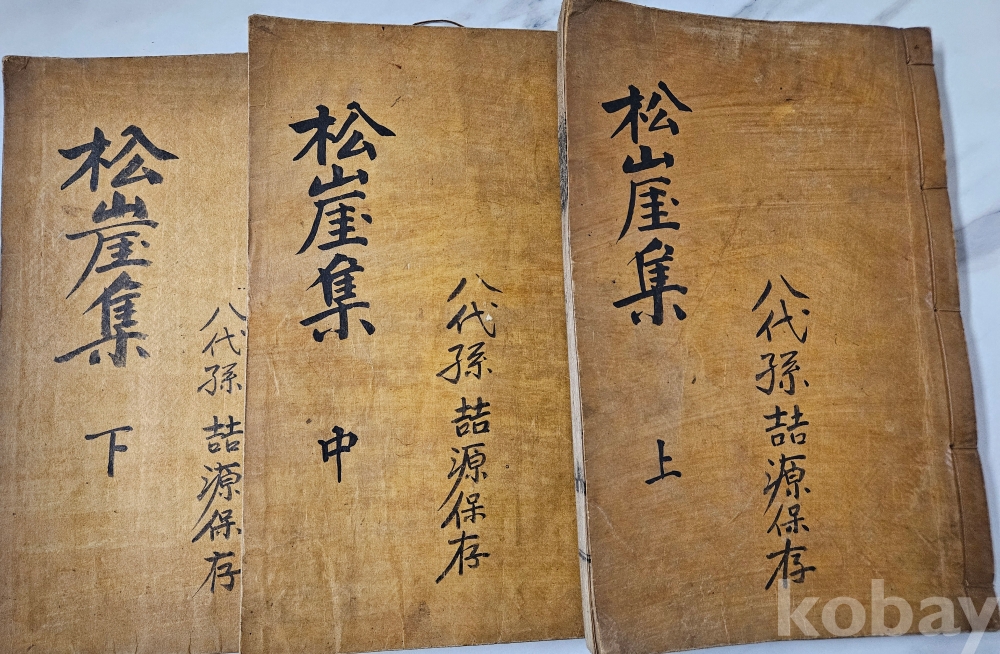 松崖集
上
八代孫 喆源保存
松崖集
中
八代孫 喆源保存
松崖集
下
八代孫 喆源保存
kobay